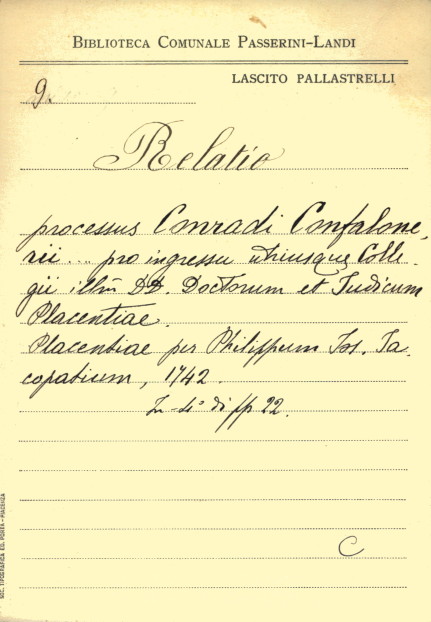 BIBLIOTECA COMUNALE PASSERINI-LANDI
LASCITO PALLASTRELLI
9.
Relatio
processus Conradi Confalone,
rii... pro ingressu utriusque Colle,
gii illm DD. Doctorum et Judicum
Placentiae.
Placentiae per Philippum Jos. Ja,
copatium, 1742.
In-4° di pp 22.
C
SOC. TIPOGRAFICA ED. PORTA-PIACENZA